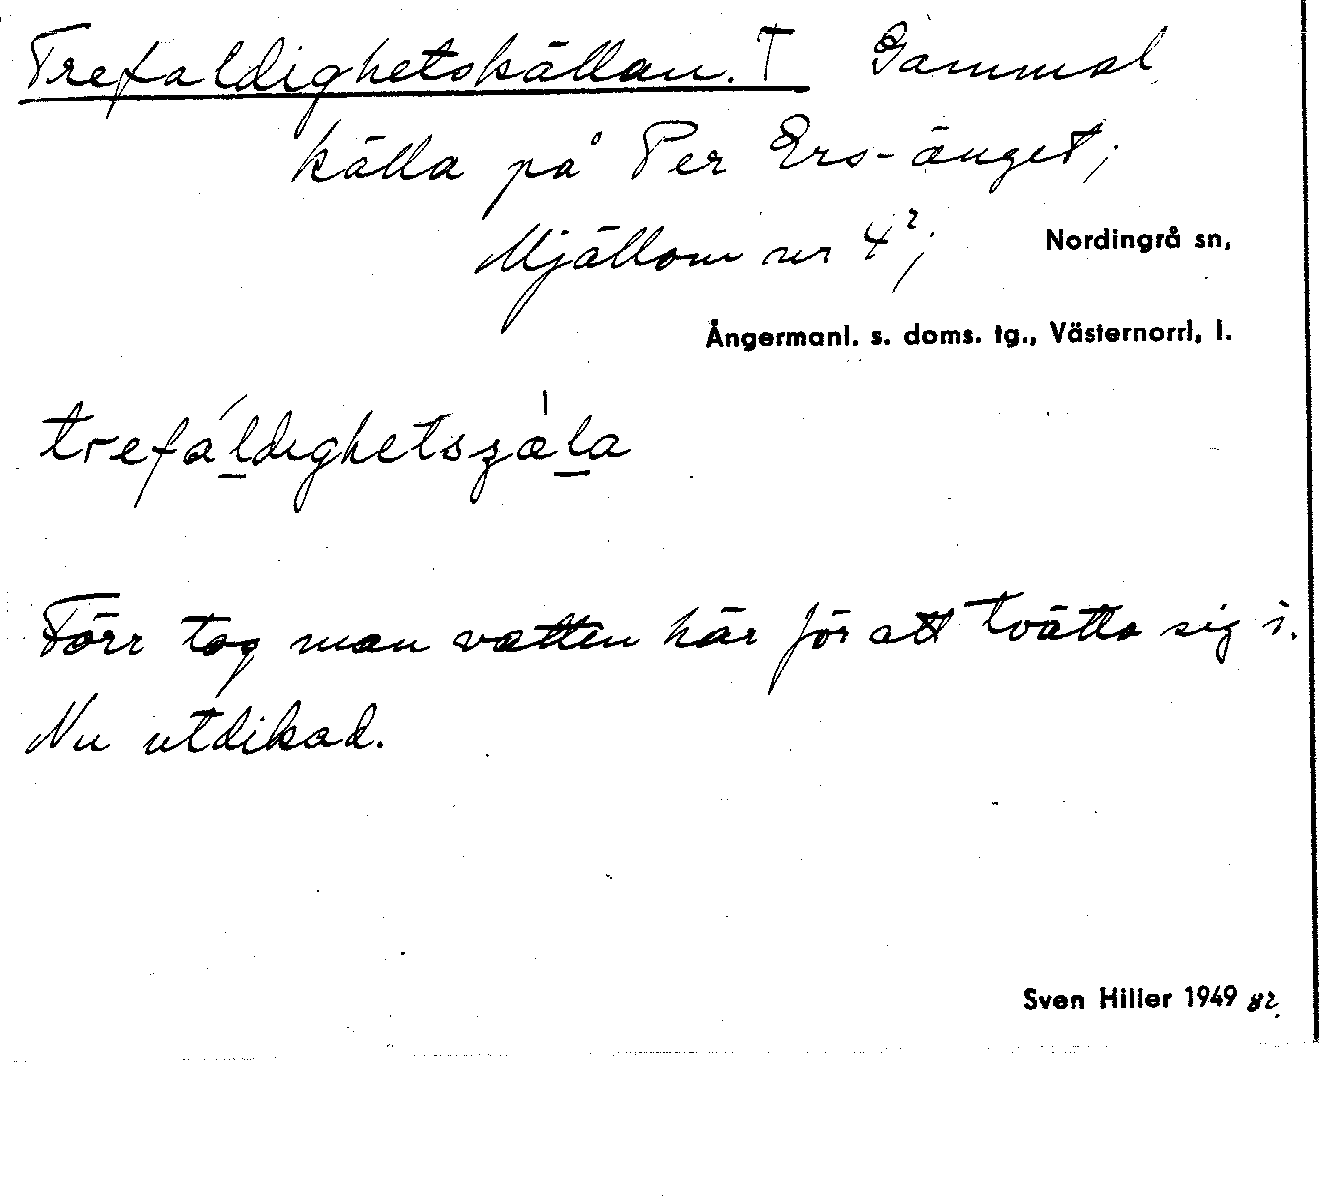 Trefaldighetskällan. † Gammal
källa på Per Ers-änget;
Mjällom nr 4²; Nordingrå sn,
Ångermanl. s. doms. tg., Västernorrl. l.
trefáldighetsʒæ̀la
Förr tog man vatten här för att tvätta sig i.
Nu utdikad.
Sven Hiller 1949 82